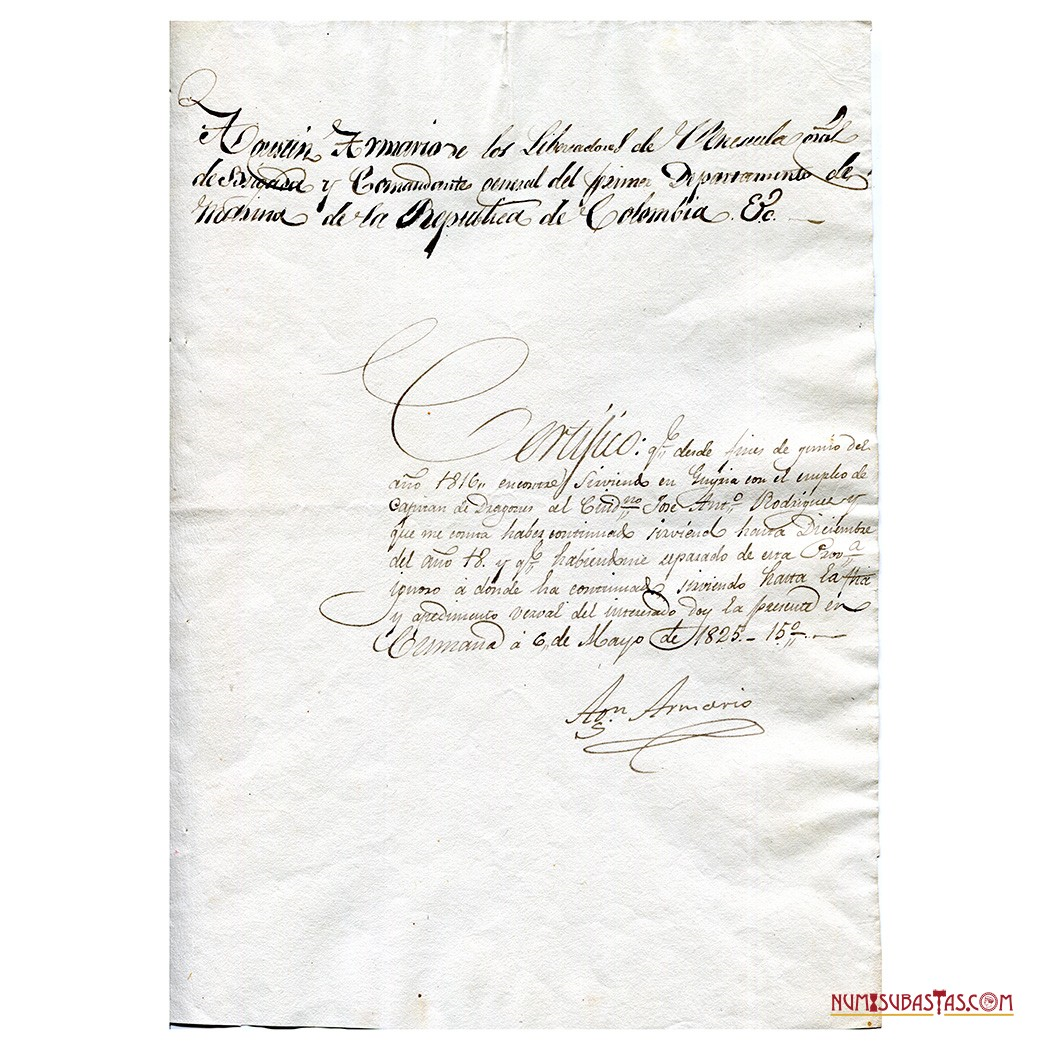 Agustin Armario de los Libertadores de Venesuela Gral
de Brigada y Comandante general del primer Departamento de
Marina de la Republica de Colombia. &c.
Certifico: qe desde fines de junio del
año 1816,, encontre sirviendo en Guiria con el empleo de
Capitan de Dragones al Ciudno Jose Anto Rodrigues y
que me consta haber continuado sirviendo hasta Diciembre
del año 18. y qe habiendome separado de esta Prova
ignoro a donde ha continuado sirviendo hasta la fha
y apedimento verval del interesado doy la presente en
Cumaná á 6,, de Mayo de 1825.- 15º.-
Agn Armario
NUMISUBASTAS.COM